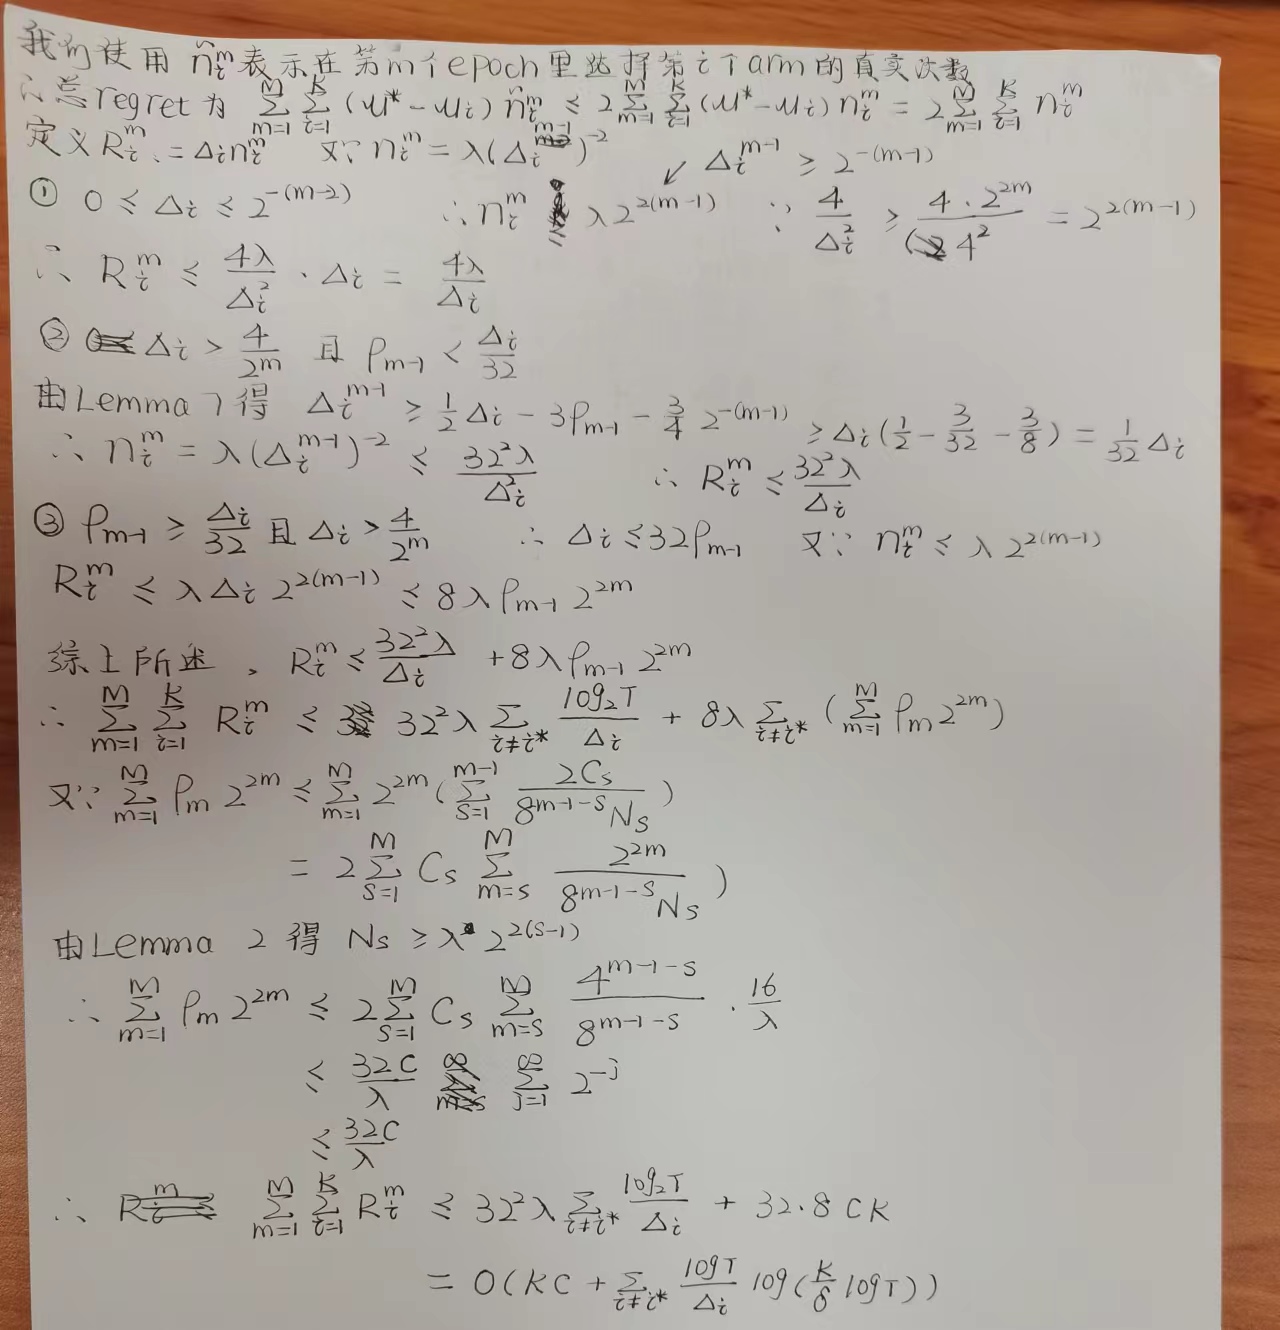 我们使用 ñᵢᵐ 表示在第m个epoch里选择第i个arm的真实次数
∴总regret为 ∑_{m=1}^{M} ∑_{i=1}^{K} (u* - uᵢ) ñᵢᵐ ≤ 2∑_{m=1}^{M} ∑_{i=1}^{K} (u* - uᵢ) nᵢᵐ = 2∑_{m=1}^{M} ∑_{i=1}^{K} nᵢᵐ
定义 Rᵢᵐ = Δᵢnᵢᵐ 又∵ nᵢᵐ = λ(Δᵢ^{m-1})^{-2} ↙ Δᵢ^{m-1} ≥ 2^{-(m-1)}
① 0 ≤ Δᵢ ≤ 2^{-(m-2)} ∴ nᵢᵐ ≤ λ2^{2(m-1)} ∵ 4/Δᵢ² ≥ 4·2^{2m}/4² = 2^{2(m-1)}
∴ Rᵢᵐ ≤ 4λ/Δᵢ² · Δᵢ = 4λ/Δᵢ
② Δᵢ > 4/2^m 且 ρ_{m-1} < Δᵢ/32
由Lemma 7得 Δᵢ^{m-1} ≥ 1/2 Δᵢ - 3ρ_{m-1} - 3/4 2^{-(m-1)} ≥ Δᵢ(1/2 - 3/32 - 3/8) = 1/32 Δᵢ
∴ nᵢᵐ = λ(Δᵢ^{m-1})^{-2} ≤ 32²λ/Δᵢ² ∴ Rᵢᵐ ≤ 32²λ/Δᵢ
③ ρ_{m-1} ≥ Δᵢ/32 且 Δᵢ > 4/2^m ∴ Δᵢ ≤ 32ρ_{m-1} 又∵ nᵢᵐ ≤ λ2^{2(m-1)}
Rᵢᵐ ≤ λΔᵢ2^{2(m-1)} ≤ 8λρ_{m-1}2^{2m}
综上所述, Rᵢᵐ ≤ 32²λ/Δᵢ + 8λρ_{m-1}2^{2m}
∴ ∑_{m=1}^{M} ∑_{i=1}^{K} Rᵢᵐ ≤ 32²λ ∑_{i≠i*} log₂T/Δᵢ + 8λ ∑_{i≠i*} (∑_{m=1}^{M} ρ_m 2^{2m})
又∵ ∑_{m=1}^{M} ρ_m 2^{2m} ≤ ∑_{m=1}^{M} 2^{2m} (∑_{s=1}^{m-1} 2C_s/(8^{m-1-s}N_s))
= 2∑_{s=1}^{M} C_s ∑_{m=s}^{M} 2^{2m}/(8^{m-1-s}N_s) )
由Lemma 2得 N_s ≥ λ 2^{2(s-1)}
∴ ∑_{m=1}^{M} ρ_m 2^{2m} ≤ 2∑_{s=1}^{M} C_s ∑_{m=s}^{M} 4^{m-1-s}/8^{m-1-s} · 16/λ
≤ 32C/λ ∑_{j=1}^{∞} 2^{-j}
≤ 32C/λ
∴ ∑_{m=1}^{M} ∑_{i=1}^{K} Rᵢᵐ ≤ 32²λ ∑_{i≠i*} log₂T/Δᵢ + 32·8CK
= O(KC + ∑_{i≠i*} logT/Δᵢ log(K/δ logT))